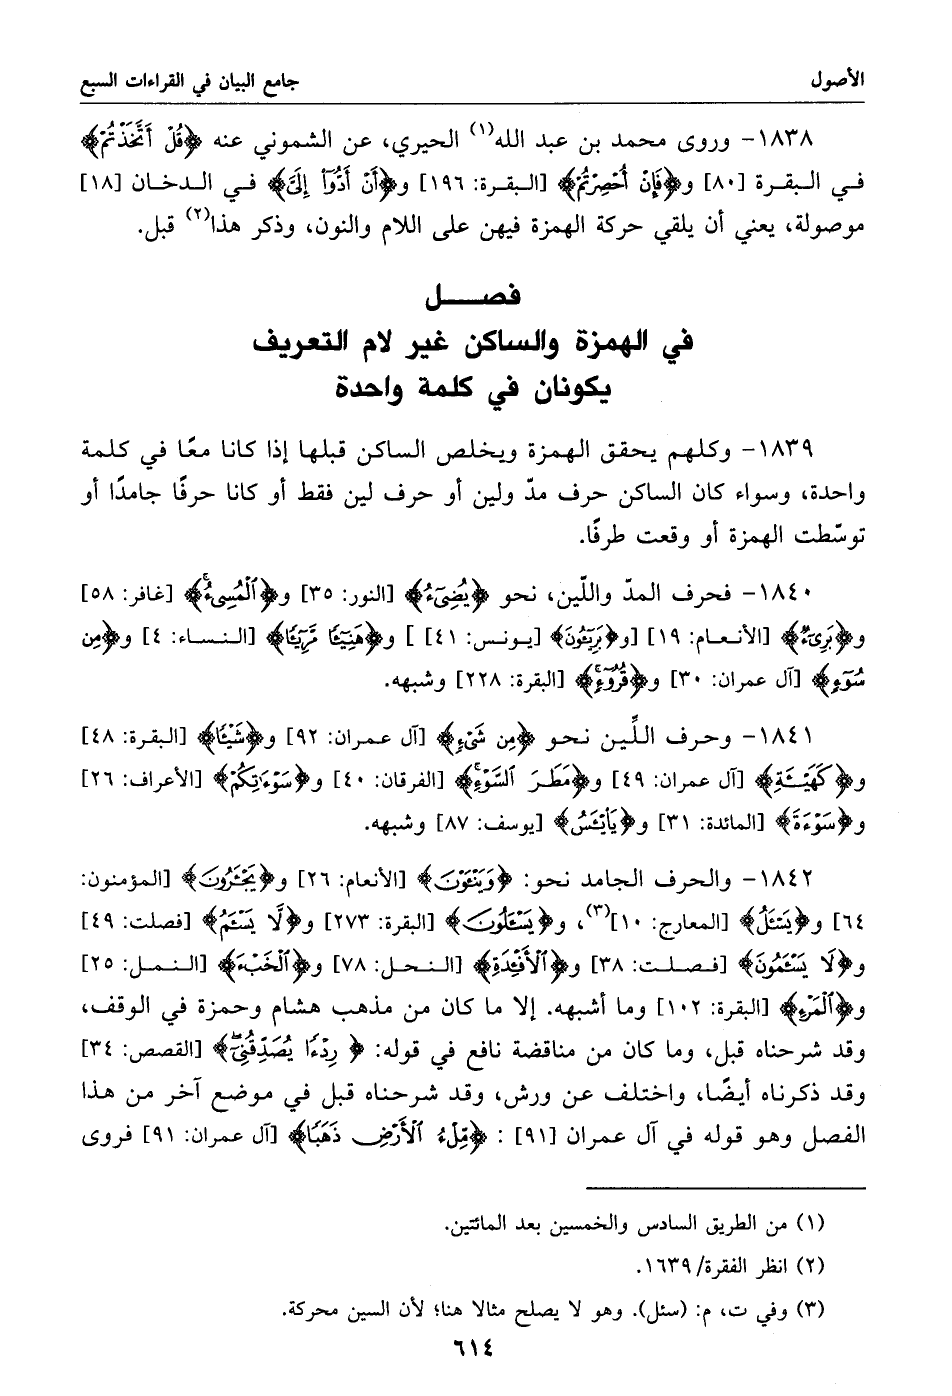 الأصول
جامع البيان في القراءات السبع
١٨٣٨- وروى محمد بن عبد الله(١) الحيري، عن الشموني عنه ﴿قُلْ أَتَّخَذْتُمْ﴾
في البقرة [٨٠] و﴿فَإِنْ أُحْصِرْتُمْ﴾ [البقرة: ١٩٦] و﴿أَنْ أَدُّوٓا۟ إِلَيَّ﴾ في الدخان [١٨]
موصولة، يعني أن يلقي حركة الهمزة فيهن على اللام والنون، وذكر هذا(٢) قبل.
فصـــل
في الهمزة والساكن غير لام التعريف
يكونان في كلمة واحدة
١٨٣٩- وكلهم يحقق الهمزة ويخلص الساكن قبلها إذا كانا معًا في كلمة
واحدة، وسواء كان الساكن حرف مدّ ولين أو حرف لين فقط أو كانا حرفًا جامدًا أو
توسّطت الهمزة أو وقعت طرفًا.
١٨٤٠- فحرف المدّ واللّين، نحو ﴿يُضِىٓءُ﴾ [النور: ٣٥] و﴿ٱلْمُسِىٓءُ ۚ﴾ [غافر: ٥٨]
و﴿بَرِىٓءٌ﴾ [الأنعام: ١٩] [و﴿بَرِيٓـُٔونَ﴾ [يونس: ٤١] ] و﴿هَنِيٓـًٔا مَّرِيٓـًٔا﴾ [النساء: ٤] و﴿مِن
سُوٓءٍ﴾ [آل عمران: ٣٠] و﴿قُرُوٓءٍ ۚ﴾ [البقرة: ٢٢٨] وشبهه.
١٨٤١- وحرف اللِّين نحو ﴿مِن شَىْءٍ﴾ [آل عمران: ٩٢] و﴿شَيْـًٔا﴾ [البقرة: ٤٨]
و﴿كَهَيْـَٔةِ﴾ [آل عمران: ٤٩] و﴿مَطَرَ ٱلسَّوْءِ ۚ﴾ [الفرقان: ٤٠] و﴿سَوْءَٰتِكُمْ﴾ [الأعراف: ٢٦]
و﴿سَوْءَةَ﴾ [المائدة: ٣١] و﴿يَا۟يْـَٔسُ﴾ [يوسف: ٨٧] وشبهه.
١٨٤٢- والحرف الجامد نحو: ﴿وَيَنْـَٔوْنَ﴾ [الأنعام: ٢٦] و﴿يَجْـَٔرُونَ﴾ [المؤمنون:
٦٤] و﴿يَسْـَٔلُ﴾ [المعارج: ١٠](٣)، و﴿يَسْـَٔلُونَ﴾ [البقرة: ٢٧٣] و﴿لَّا يَسْـَٔمُ﴾ [فصلت: ٤٩]
و﴿لَا يَسْـَٔمُونَ﴾ [فصلت: ٣٨] و﴿ٱلْأَفْـِٔدَةِ﴾ [النحل: ٧٨] و﴿ٱلْخَبْءَ﴾ [النمل: ٢٥]
و﴿ٱلْمَرْءِ﴾ [البقرة: ١٠٢] وما أشبهه. إلا ما كان من مذهب هشام وحمزة في الوقف،
وقد شرحناه قبل، وما كان من مناقضة نافع في قوله: ﴿رِدْءًا يُصَدِّقُنِىٓ ۖ﴾ [القصص: ٣٤]
وقد ذكرناه أيضًا، واختلف عن ورش، وقد شرحناه قبل في موضع آخر من هذا
الفصل وهو قوله في آل عمران [٩١] : ﴿مِّلْءُ ٱلْأَرْضِ ذَهَبًا﴾ [آل عمران: ٩١] فروى
(١) من الطريق السادس والخمسين بعد المائتين.
(٢) انظر الفقرة/١٦٣٩.
(٣) وفي ت، م: (سئل). وهو لا يصلح مثالا هنا؛ لأن السين محركة.
٦١٤